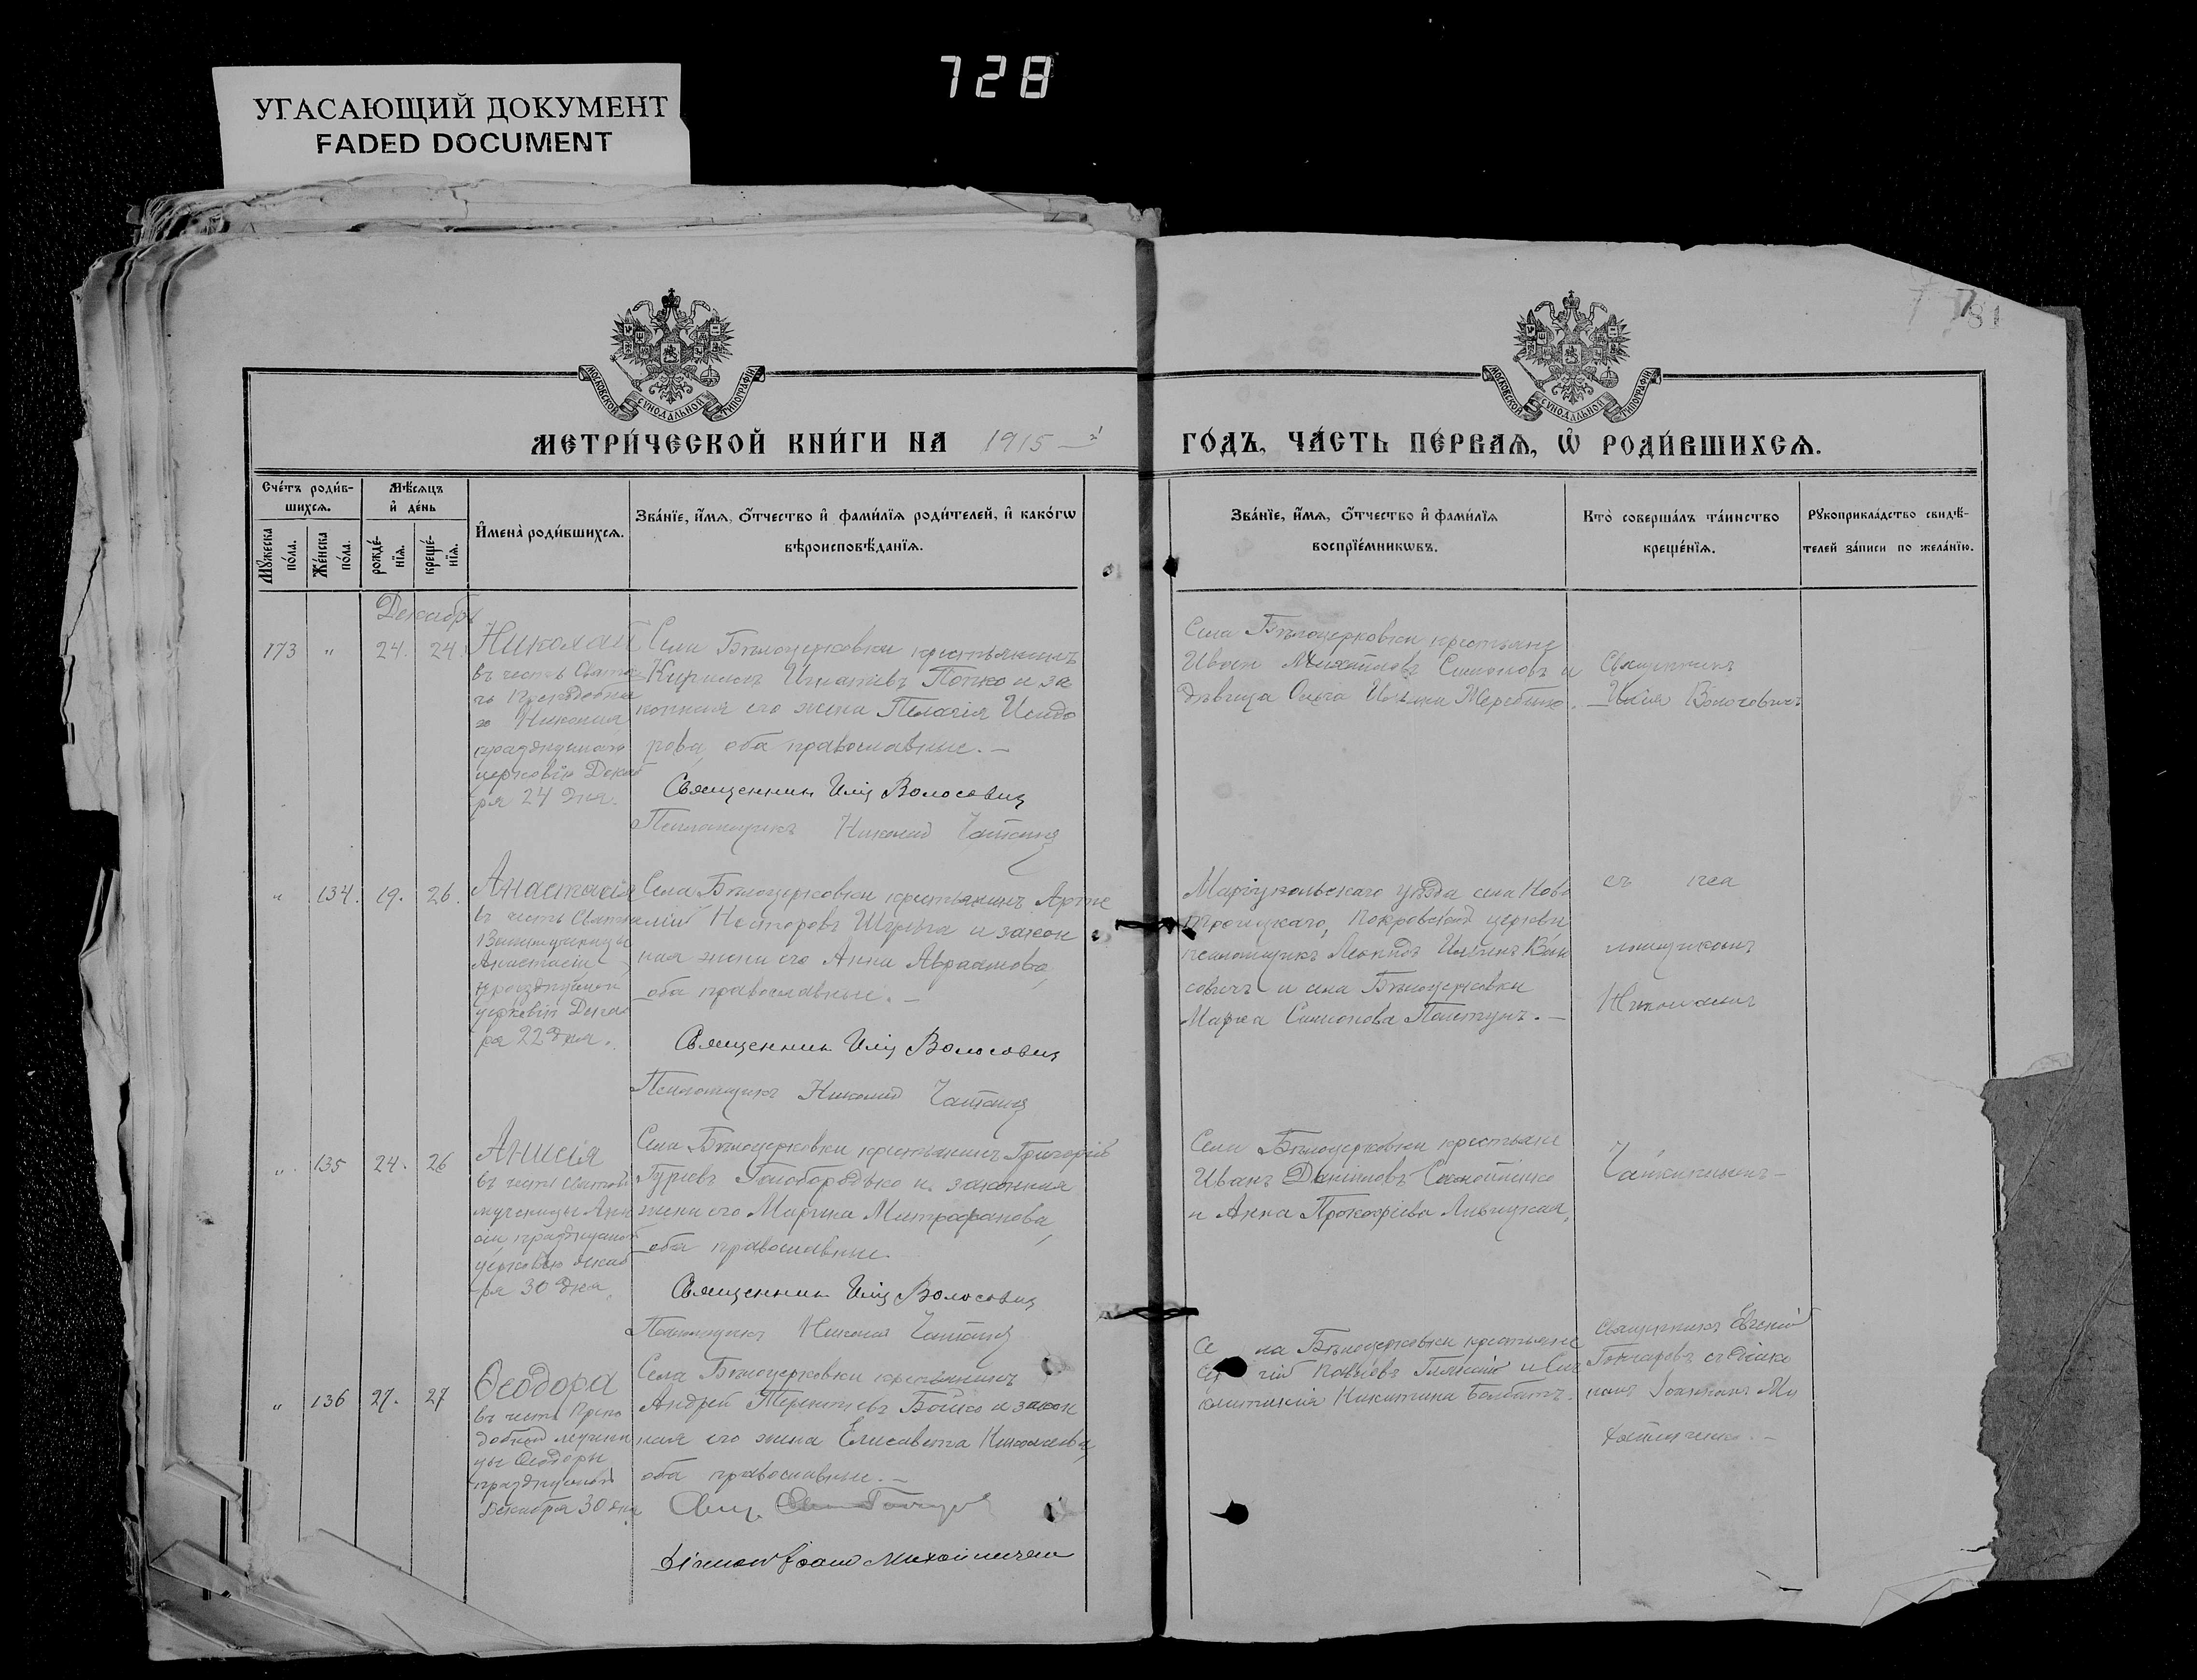 728
УГАСАЮЩИЙ ДОКУМЕНТ
FADED DOCUMENT
81
МОСКОВСКОЙ СУНОДАЛЬНОЙ ТИПОГРАФІИ
МОСКОВСКОЙ СУНОДАЛЬНОЙ ТИПОГРАФІИ
МЕТРИ́ЧЕСКОЙ КНИ́ГИ НА 1915 ГО́ДЪ, ЧА́СТЬ ПЕ́РВАѦ, Ѡ҆ РОДИ́ВШИХСѦ.
Сче́тъ роди́в-
шихсѧ.
Мѣ́сѧцъ
и҆ де́нь
Мꙋ́жеска по́ла.
Же́нска по́ла.
рожде́-
нїѧ.
креще́-
нїѧ.
И҆мена̀ роди́вшихсѧ.
Зва́нїе, и҆́мѧ, ѻ҆́тчество и҆ фами́лїѧ роди́телей, и҆ како́гѡ
вѣроисповѣ́данїѧ.
Зва́нїе, и҆́мѧ, ѻ҆́тчество и҆ фами́лїѧ
воспрїе́мникѡвъ.
Кто̀ соверша́лъ та́инство
креще́нїѧ.
Рꙋкоприкла́дство свидѣ́-
телей за́писи по жела́нїю.
Декабрь
173 " 24. 24.
Николай
въ честь Свята
го Преподобна
го Никона
празднуемаго
церковію Декаб
ря 24 дня.
Села Бѣлоцерковки крестьянинъ
Игнатіевъ Попко и за
конная его жена Пелагія Исидо
рова, оба православные. —
Священник Илія Волосович
Псаломщикъ Николай
Села Бѣлоцерковки крестьяне
Иванъ Михайловъ Симоновъ и
дѣвица Ольга
Священникъ
Илія Волосовичъ
" 134. 19. 26.
Анастасія
въ честь Святой
Великомученицы
Анастасіи
празднуемой
церковію Декаб
ря 22 дня.
Села Бѣлоцерковки крестьянинъ Арте
мій Несторовъ и закон
ная жена его Анна Авраамова,
оба православные. —
Священник Илія Волосович
Псаломщикъ Николай
Маріупольскаго уѣзда села Ново
троицкаго, Покровской церкви
псаломщикъ Леонидъ Ильинъ Воло
совичъ и села Бѣлоцерковки
Марѳа Симонова
съ пса
ломщикомъ
Николаемъ
". 135 24. 26
Анисія
въ честь святой
мученицы Ани
сіи празднуемой
церковью декаб
ря 30 дня.
Села Бѣлоцерковки крестьянинъ Григорій
Гуріевъ Голобородько и законная
жена его Марина Митрофанова,
оба православные.
Священник Илія Волосович
Псаломщикъ Николай
Села Бѣлоцерковки крестьяне
Иванъ Даніиловъ
и Анна Прокофіева
" 136 27. 27
Ѳеодора
въ честь Препо
добной мучени
цы Ѳеодоры
празднуемой
Декабря 30 дня
Села Бѣлоцерковки крестьянинъ
Андрей Терентіевъ Бойко и закон
ная его жена Елисавета Николаева,
оба православные. —
Свящ.
Діакон Іоанн Михайличенко
Села Бѣлоцерковки крестьяне
Павловъ
Никитина
Священникъ Евгеній
Гончаровъ съ діако
номъ Іоанномъ Ми
хайличенко. —